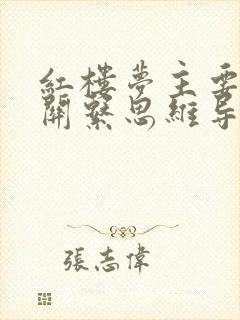 紅樓夢主要
關繫思維导
張志偉